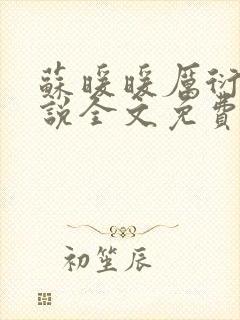 蘇暖暖厲衍
說全文免費
初笙辰